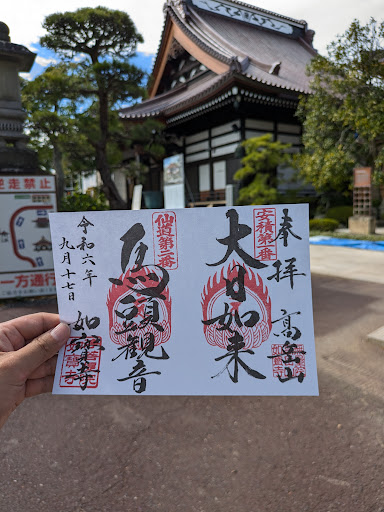 奉拝
高山
安積第一番
大日如来
仙道第三番
馬頭観音
令和六年
九月十七日
如寶寺
走禁止
一方通行